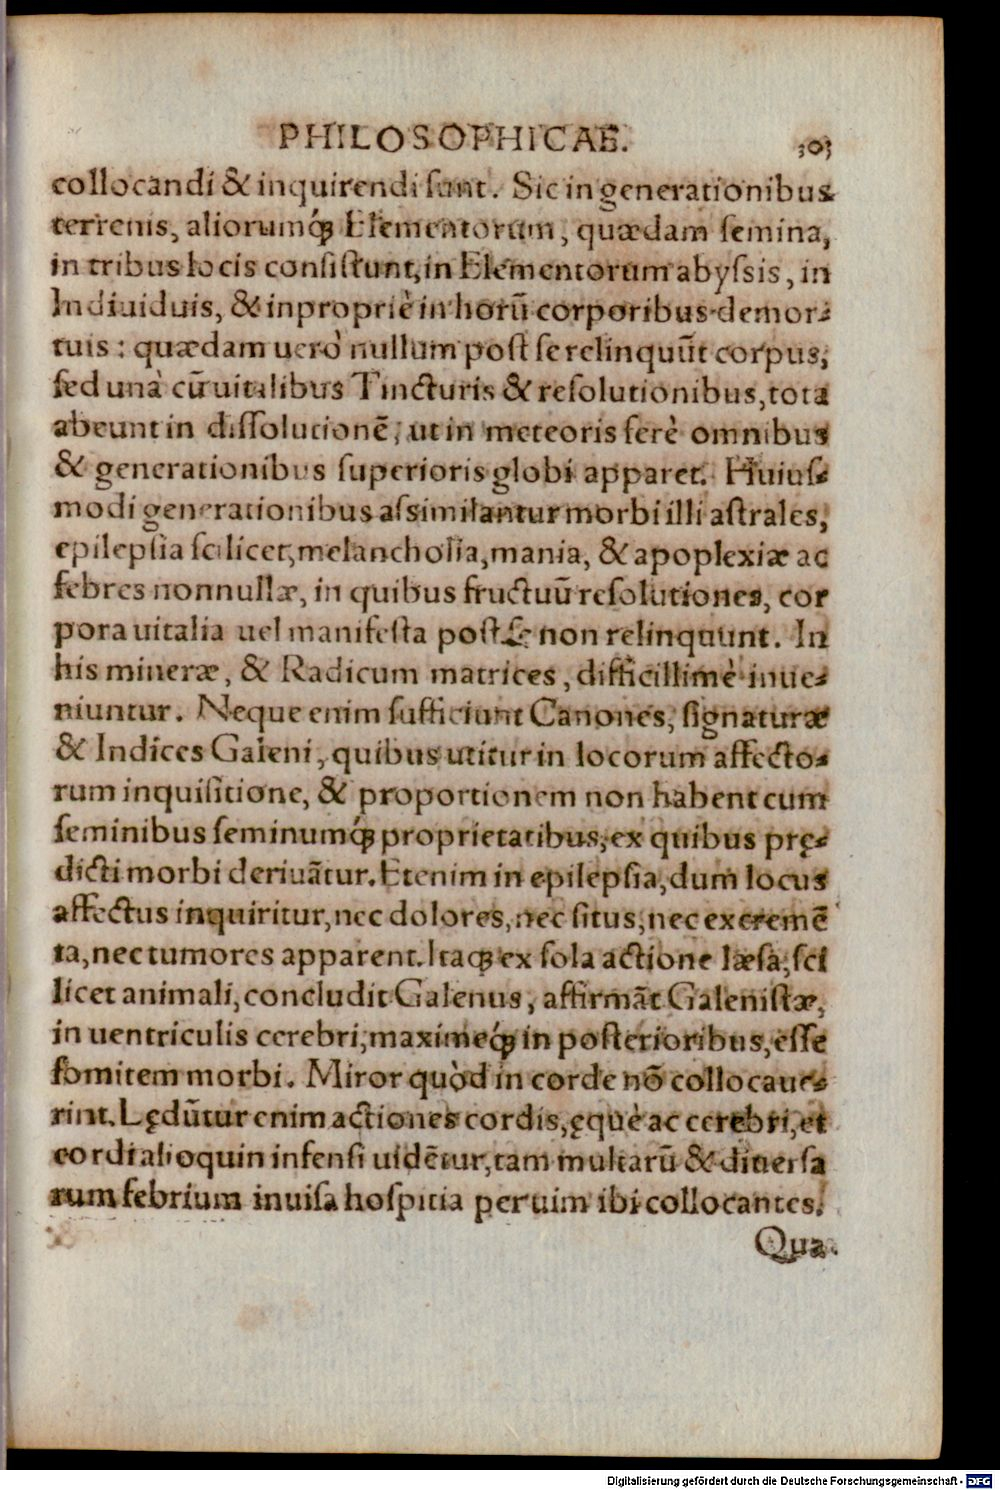 PHILOSOPHICAE. 303
collocandi & inquirendi sunt. Sic in generationibus
terrenis, aliorumq́ꝫ Elementorum, quædam semina,
in tribus locis consistunt, in Elementorum abyssis, in
Indiuiduis, & inpropriè in horũ corporibus demor-
tuis: quædam uerò nullum post se relinquũt corpus,
sed unà cũ uitalibus Tincturis & resolutionibus, tota
abeunt in dissolutionẽ, ut in meteoris ferè omnibus
& generationibus superioris globi apparet. Huius-
modi generationibus assimilantur morbi illi astrales,
epilepsia scilicet, melancholia, mania, & apoplexiæ ac
febres nonnullæ, in quibus fructuũ resolutiones, cor
pora uitalia uel manifesta post se non relinquunt. In
his mineræ, & Radicum matrices, difficillimè inue-
niuntur. Neque enim sufficiunt Canones, signaturæ
& Indices Galeni, quibus utitur in locorum affecto-
rum inquisitione, & proportionem non habent cum
seminibus seminumq́ꝫ proprietatibus, ex quibus prę-
dicti morbi deriuãtur. Etenim in epilepsia, dum locus
affectus inquiritur, nec dolores, nec situs, nec excremẽ
ta, nec tumores apparent. Itaqꝫ ex sola actione læsa, sci
licet animali, concludit Galenus, affirmãt Galenistæ,
in uentriculis cerebri, maximeq́ꝫ in posterioribus, esse
fomitem morbi. Miror quòd in corde nõ collocaue-
rint. Lędũtur enim actiones cordis, ęquè ac cerebri, et
cordi alioquin infensi uidẽtur, tam multarũ & diuersa
rum febrium inuisa hospitia per uim ibi collocantes.
Qua.
Digitalisierung gefördert durch die Deutsche Forschungsgemeinschaft - DFG